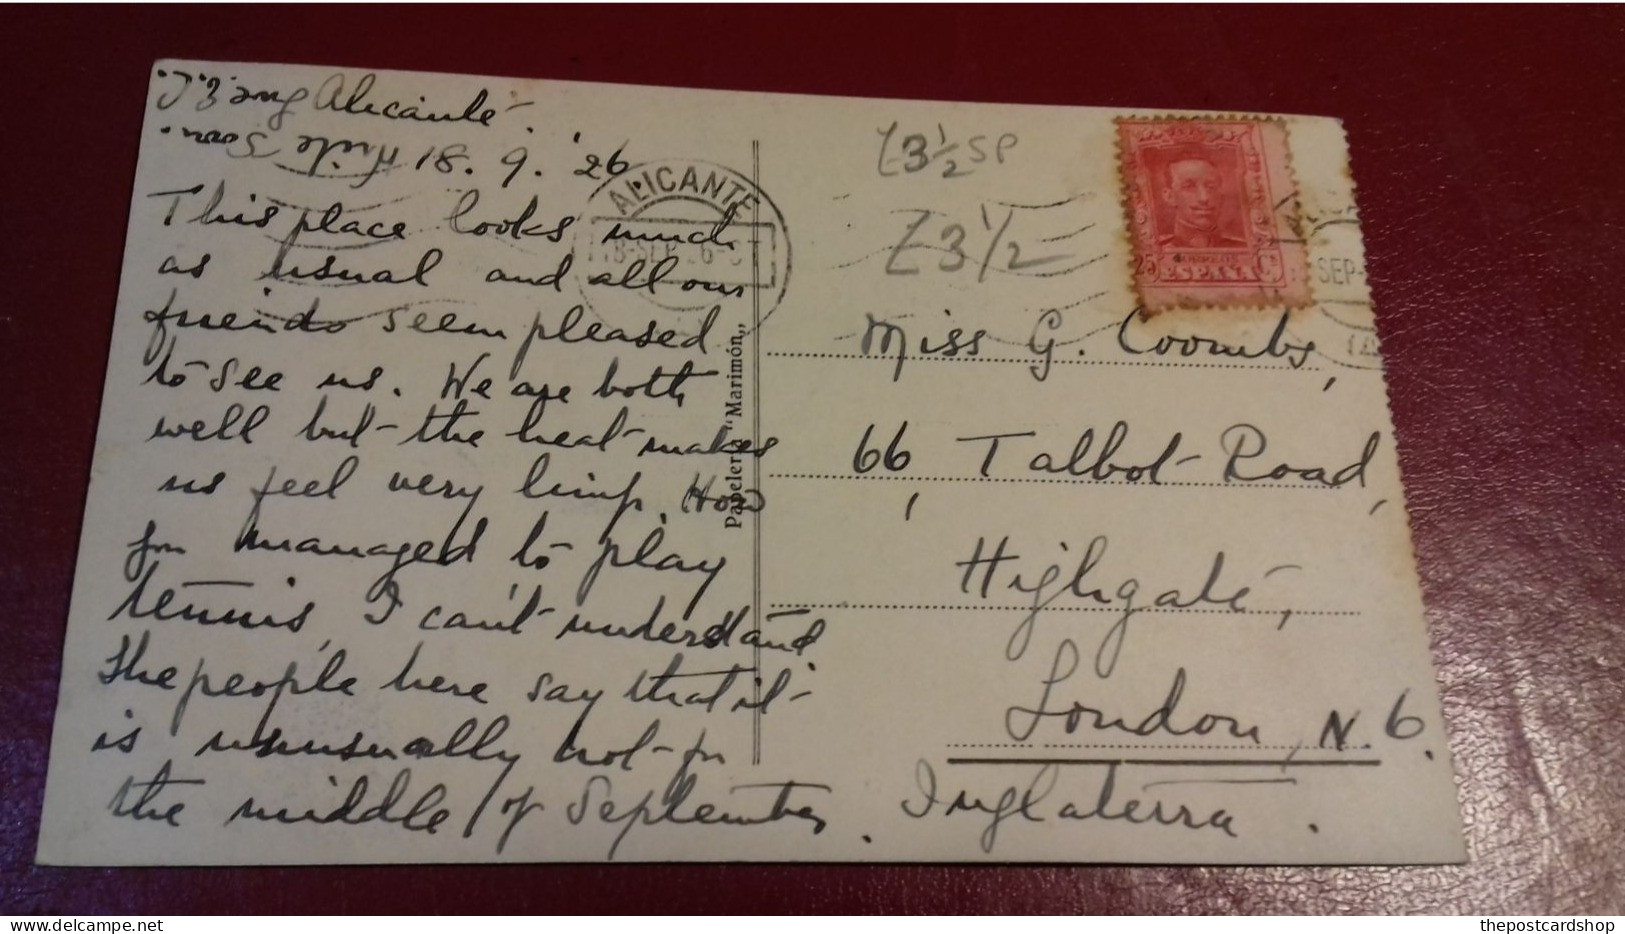 Alicante.
18. 9. '26
This place looks much
as usual and all our
friends seem pleased
to see us. We are both
well but the heat makes
us feel very limp. How
you managed to play
tennis, I can't understand.
The people here say that it
is unusually hot for
the middle of September.
Write soon.
Papelería "Marimón„
ALICANTE
18-SEP
Z3½SP
Z3½
25
CORREOS
ESPAÑA
Cs
SEP
Miss G. Coombs,
66, Talbot Road,
Highgate,
London, N. 6.
Inglaterra.
thepostcardshop@delcampe.net